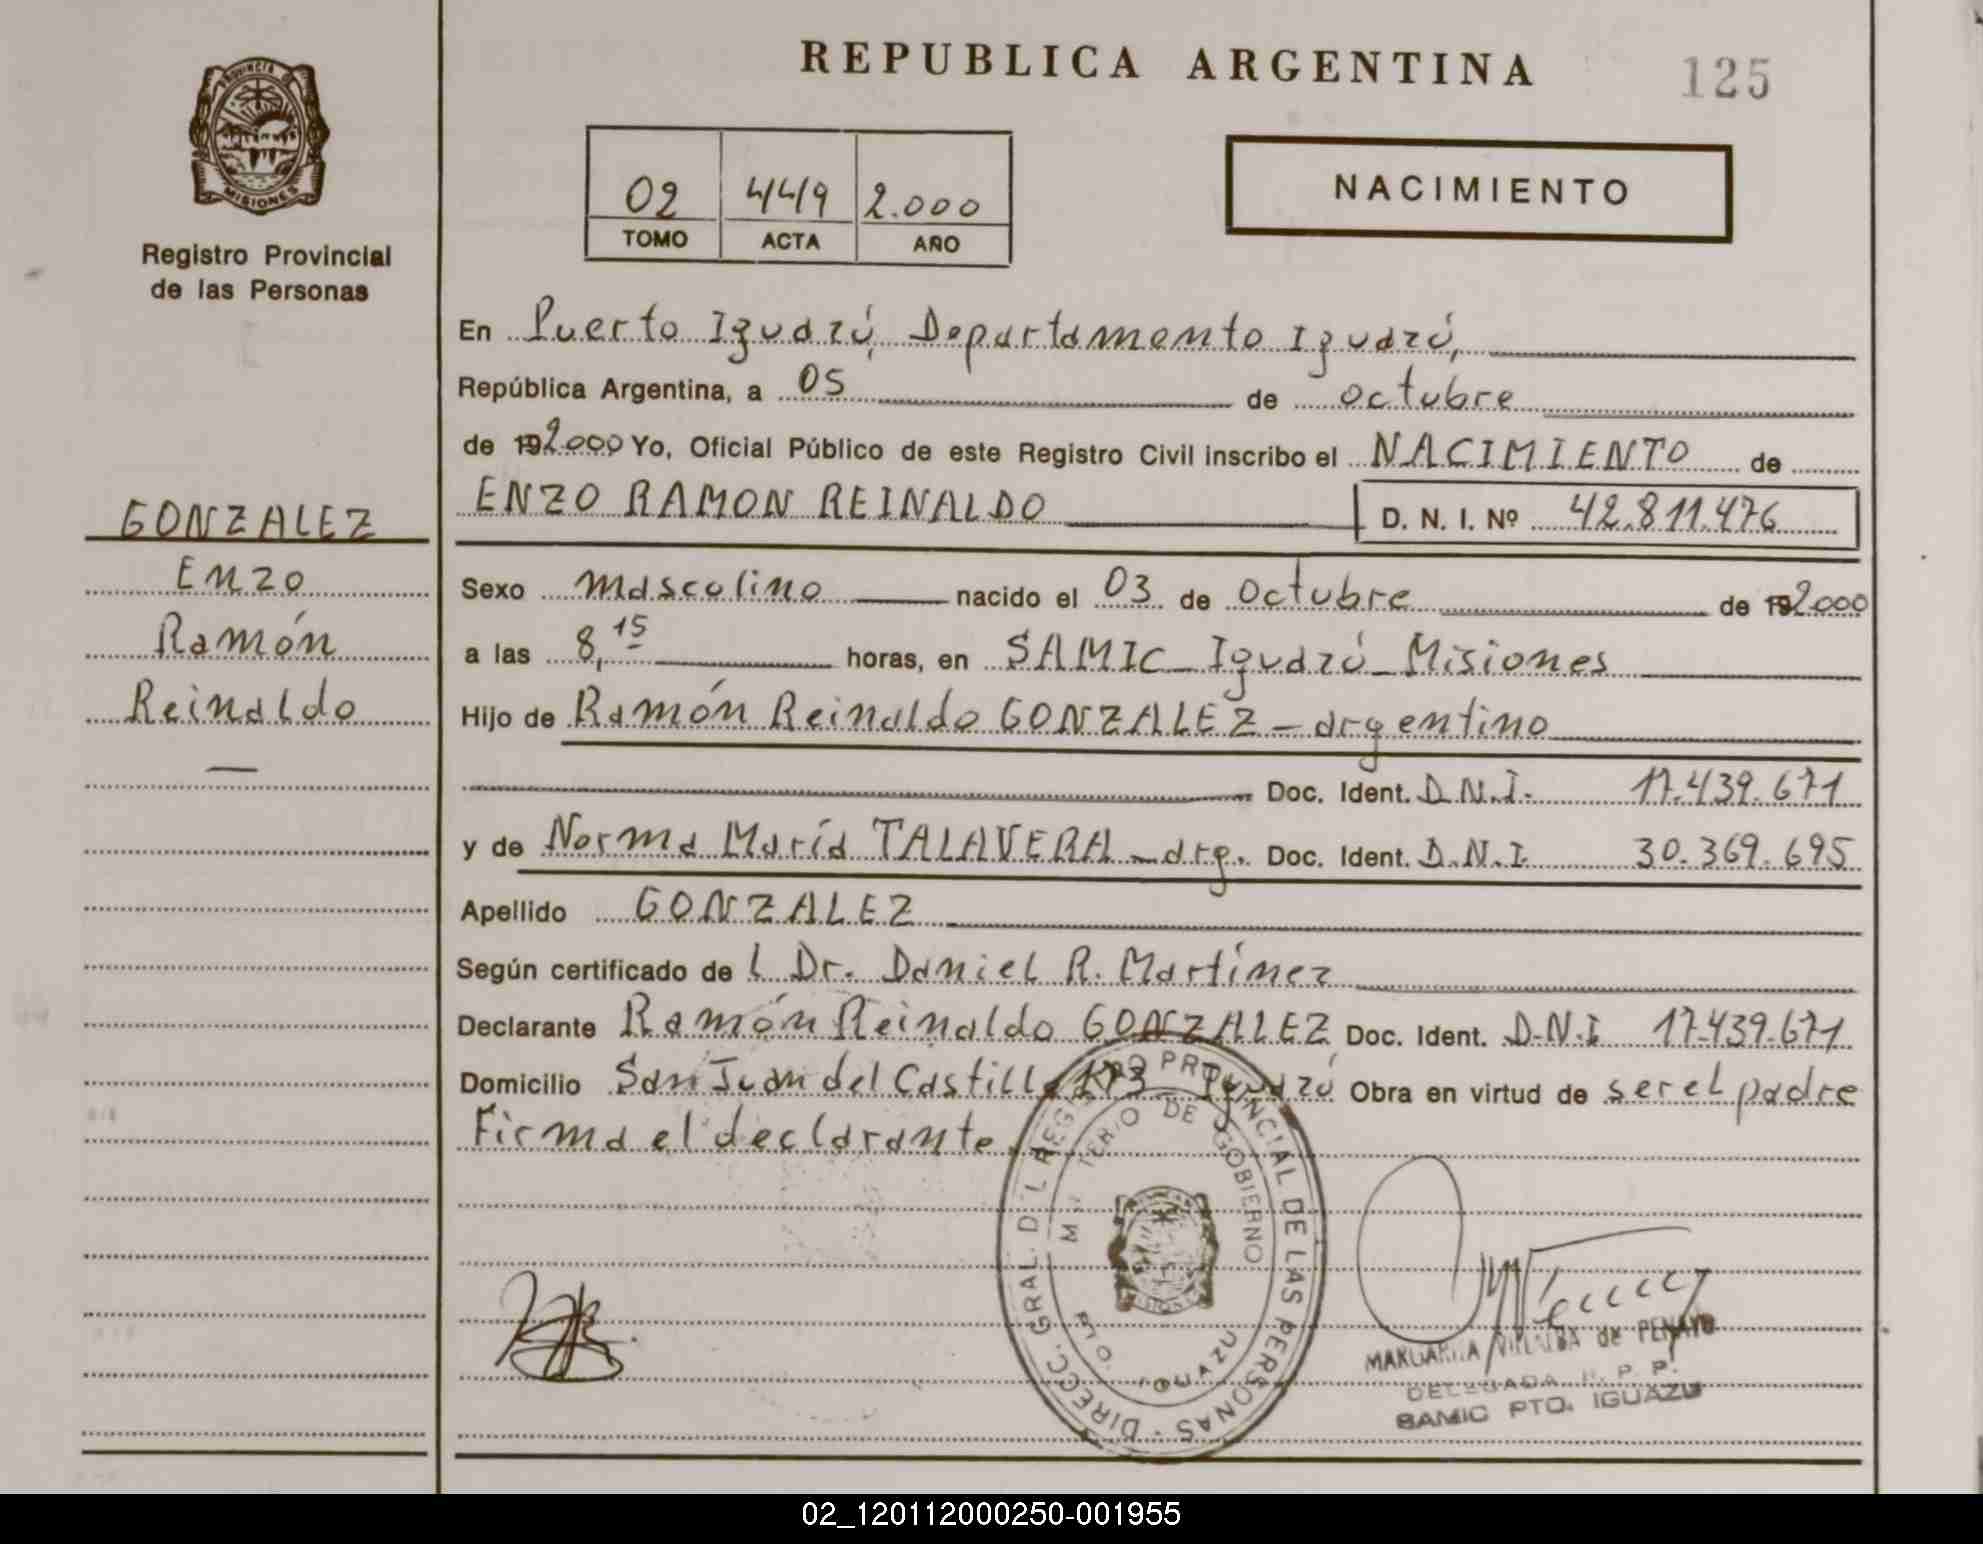 REPUBLICA ARGENTINA
125
PROVINCIA
MISIONES
Registro Provincial
de las Personas
02 449 2.000
TOMO ACTA AÑO
NACIMIENTO
En Puerto Iguazú, Departamento Iguazú,
República Argentina, a 05 de octubre
de 192000 Yo, Oficial Público de este Registro Civil inscribo el NACIMIENTO de
ENZO RAMON REINALDO D. N. I. Nº 42.811.476
GONZALEZ
Enzo
Ramón
Reinaldo
—
Sexo masculino nacido el 03 de octubre de 192000
a las 8,15 horas, en SAMIC - Iguazú - Misiones
Hijo de Ramón Reinaldo GONZALEZ - argentino
Doc. Ident. D.N.I. 17.439.671
y de Norma María TALAVERA - arg. Doc. Ident. D.N.I. 30.369.695
Apellido GONZALEZ
Según certificado de l Dr. Daniel R. Martínez
Declarante Ramón Reinaldo GONZALEZ Doc. Ident. D.N.I 17.439.671
Domicilio San Juan del Castillo 173 - Iguazú Obra en virtud de ser el padre
Firma el declarante.
DIRECC. GRAL. DEL REGISTRO PROVINCIAL DE LAS PERSONAS
MINISTERIO DE GOBIERNO
IGUAZU
MARGARITA VILLALBA de PENAYO
DELEGADA R. P. P.
SAMIC PTO. IGUAZU
02_120112000250-001955